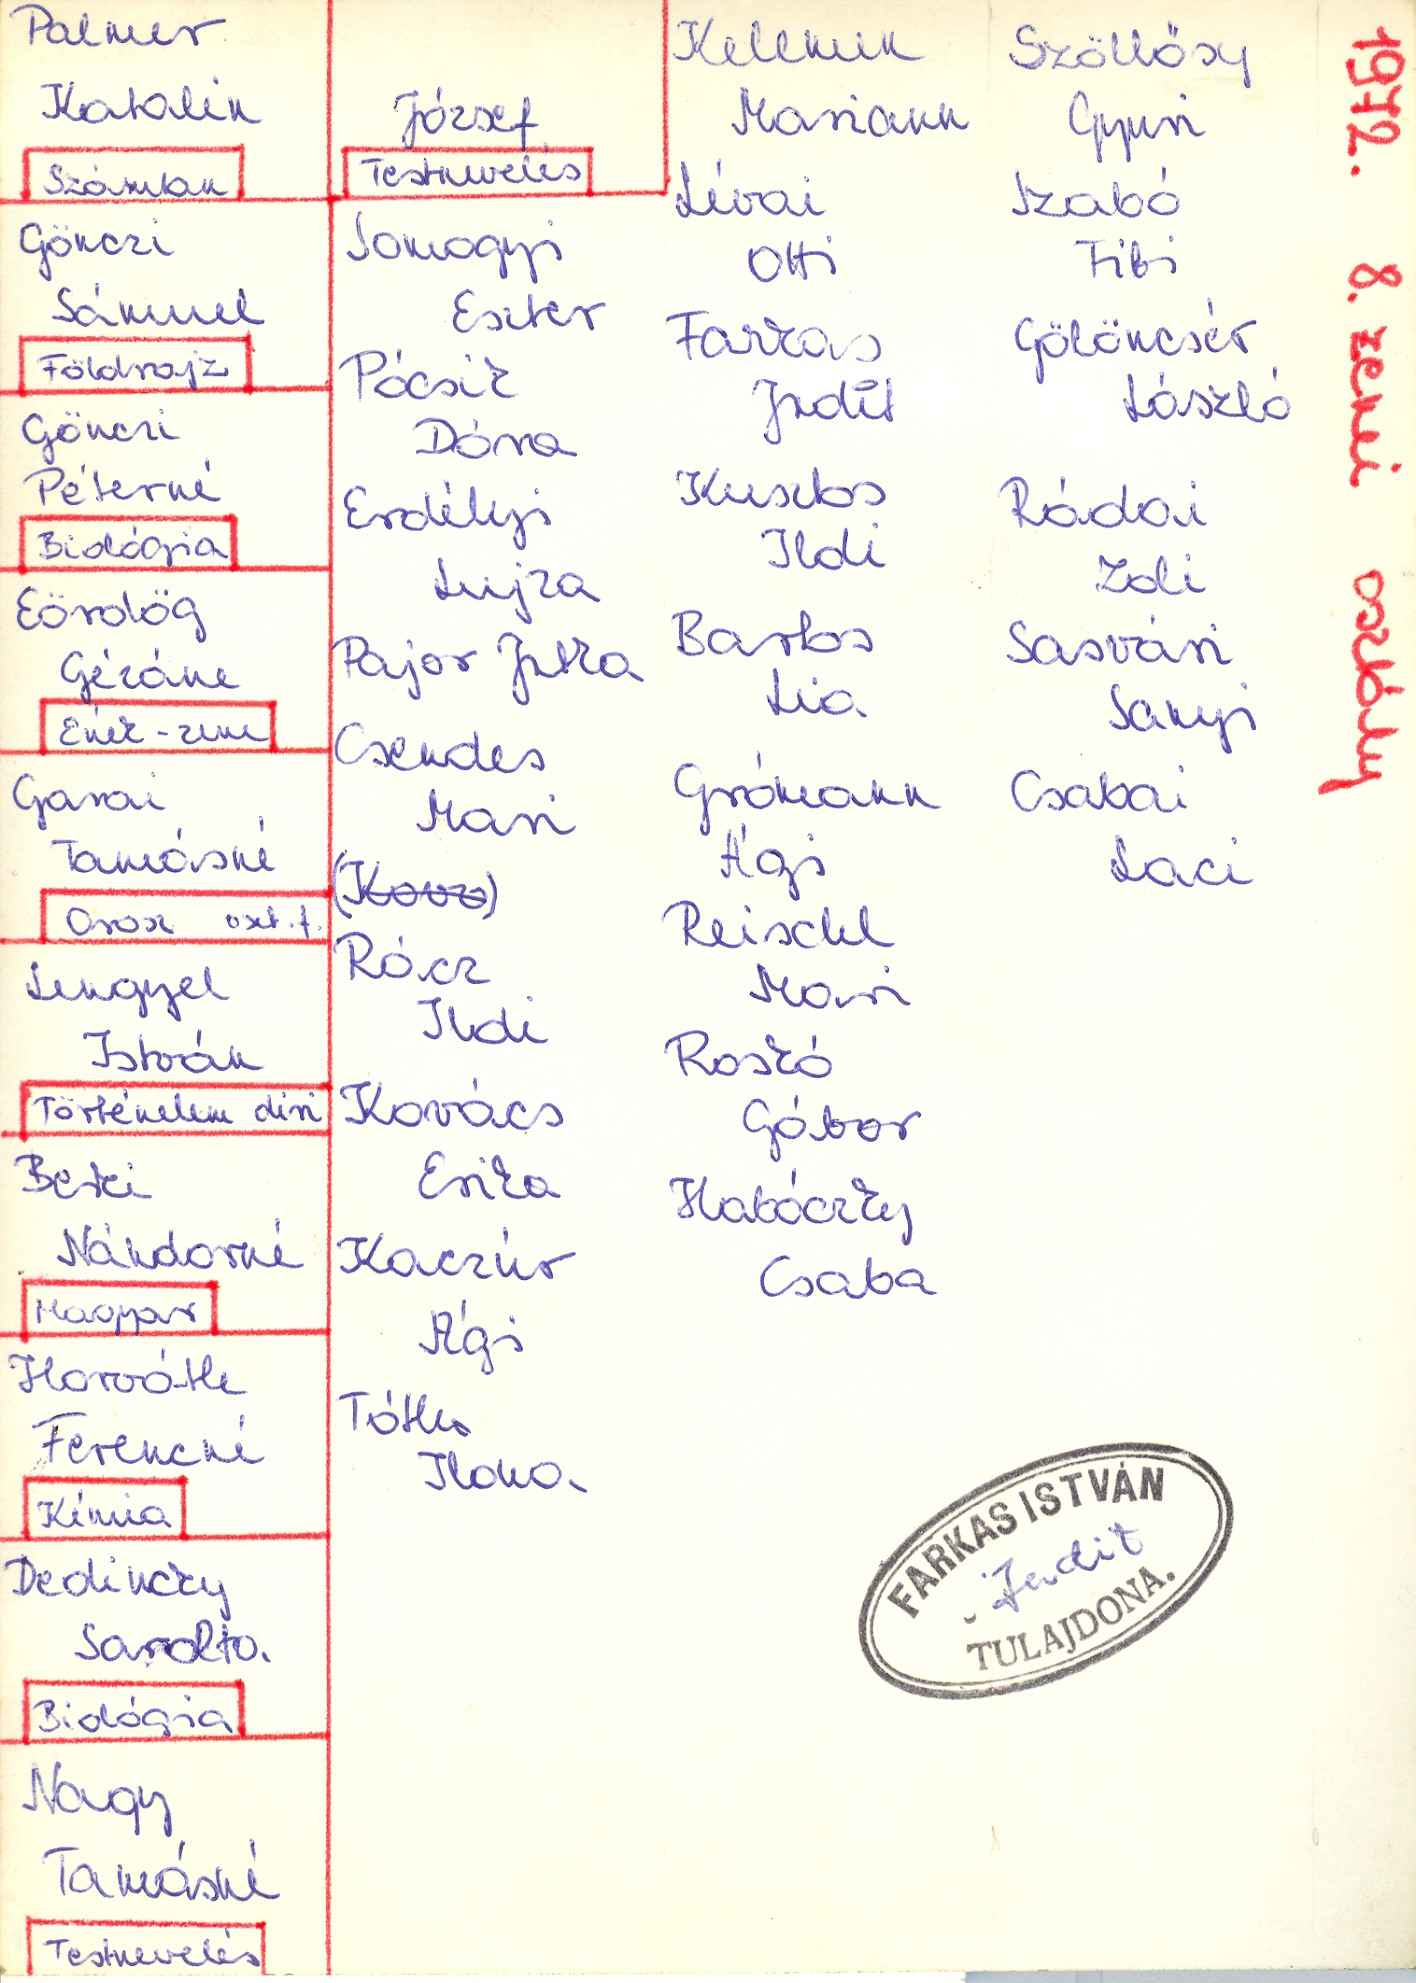 Palmer
Katalin
Számtan
Gönczi
Sámuel
Földrajz
Gönczi
Péterné
Biológia
Eördög
Gézáné
Ének-zene
Garai
Tamásné
Orosz oszt.f.
Lengyel
István
Történelem diri
Berki
Nándorné
Magyar
Horváth
Ferencné
Kémia
Dedinczky
Sarolta.
Biológia
Nagy
Tamásné
Testnevelés
József
Testnevelés
Somogyi
Eszter
Pócsik
Dóra
Erdélyi
Lujza
Pajor Jutka
Csendes
Mari
Rácz
Ildi
Kovács
Erika
Kaczúr
Ági
Tóth
Ilona.
Kelemen
Mariann
Lévai
Otti
Farkas
Judit
Kuszbos
Ildi
Bartos
Lia
Grómann
Ági
Reischl
Mari
Roskó
Gábor
Habóczky
Csaba
Szöllősy
Gyuri
Szabó
Tibi
Gölöncsér
László
Rádai
Zoli
Sasvári
Sanyi
Csabai
Laci
1972. 8. zenei osztály
FARKAS ISTVÁN
Judit
TULAJDONA.